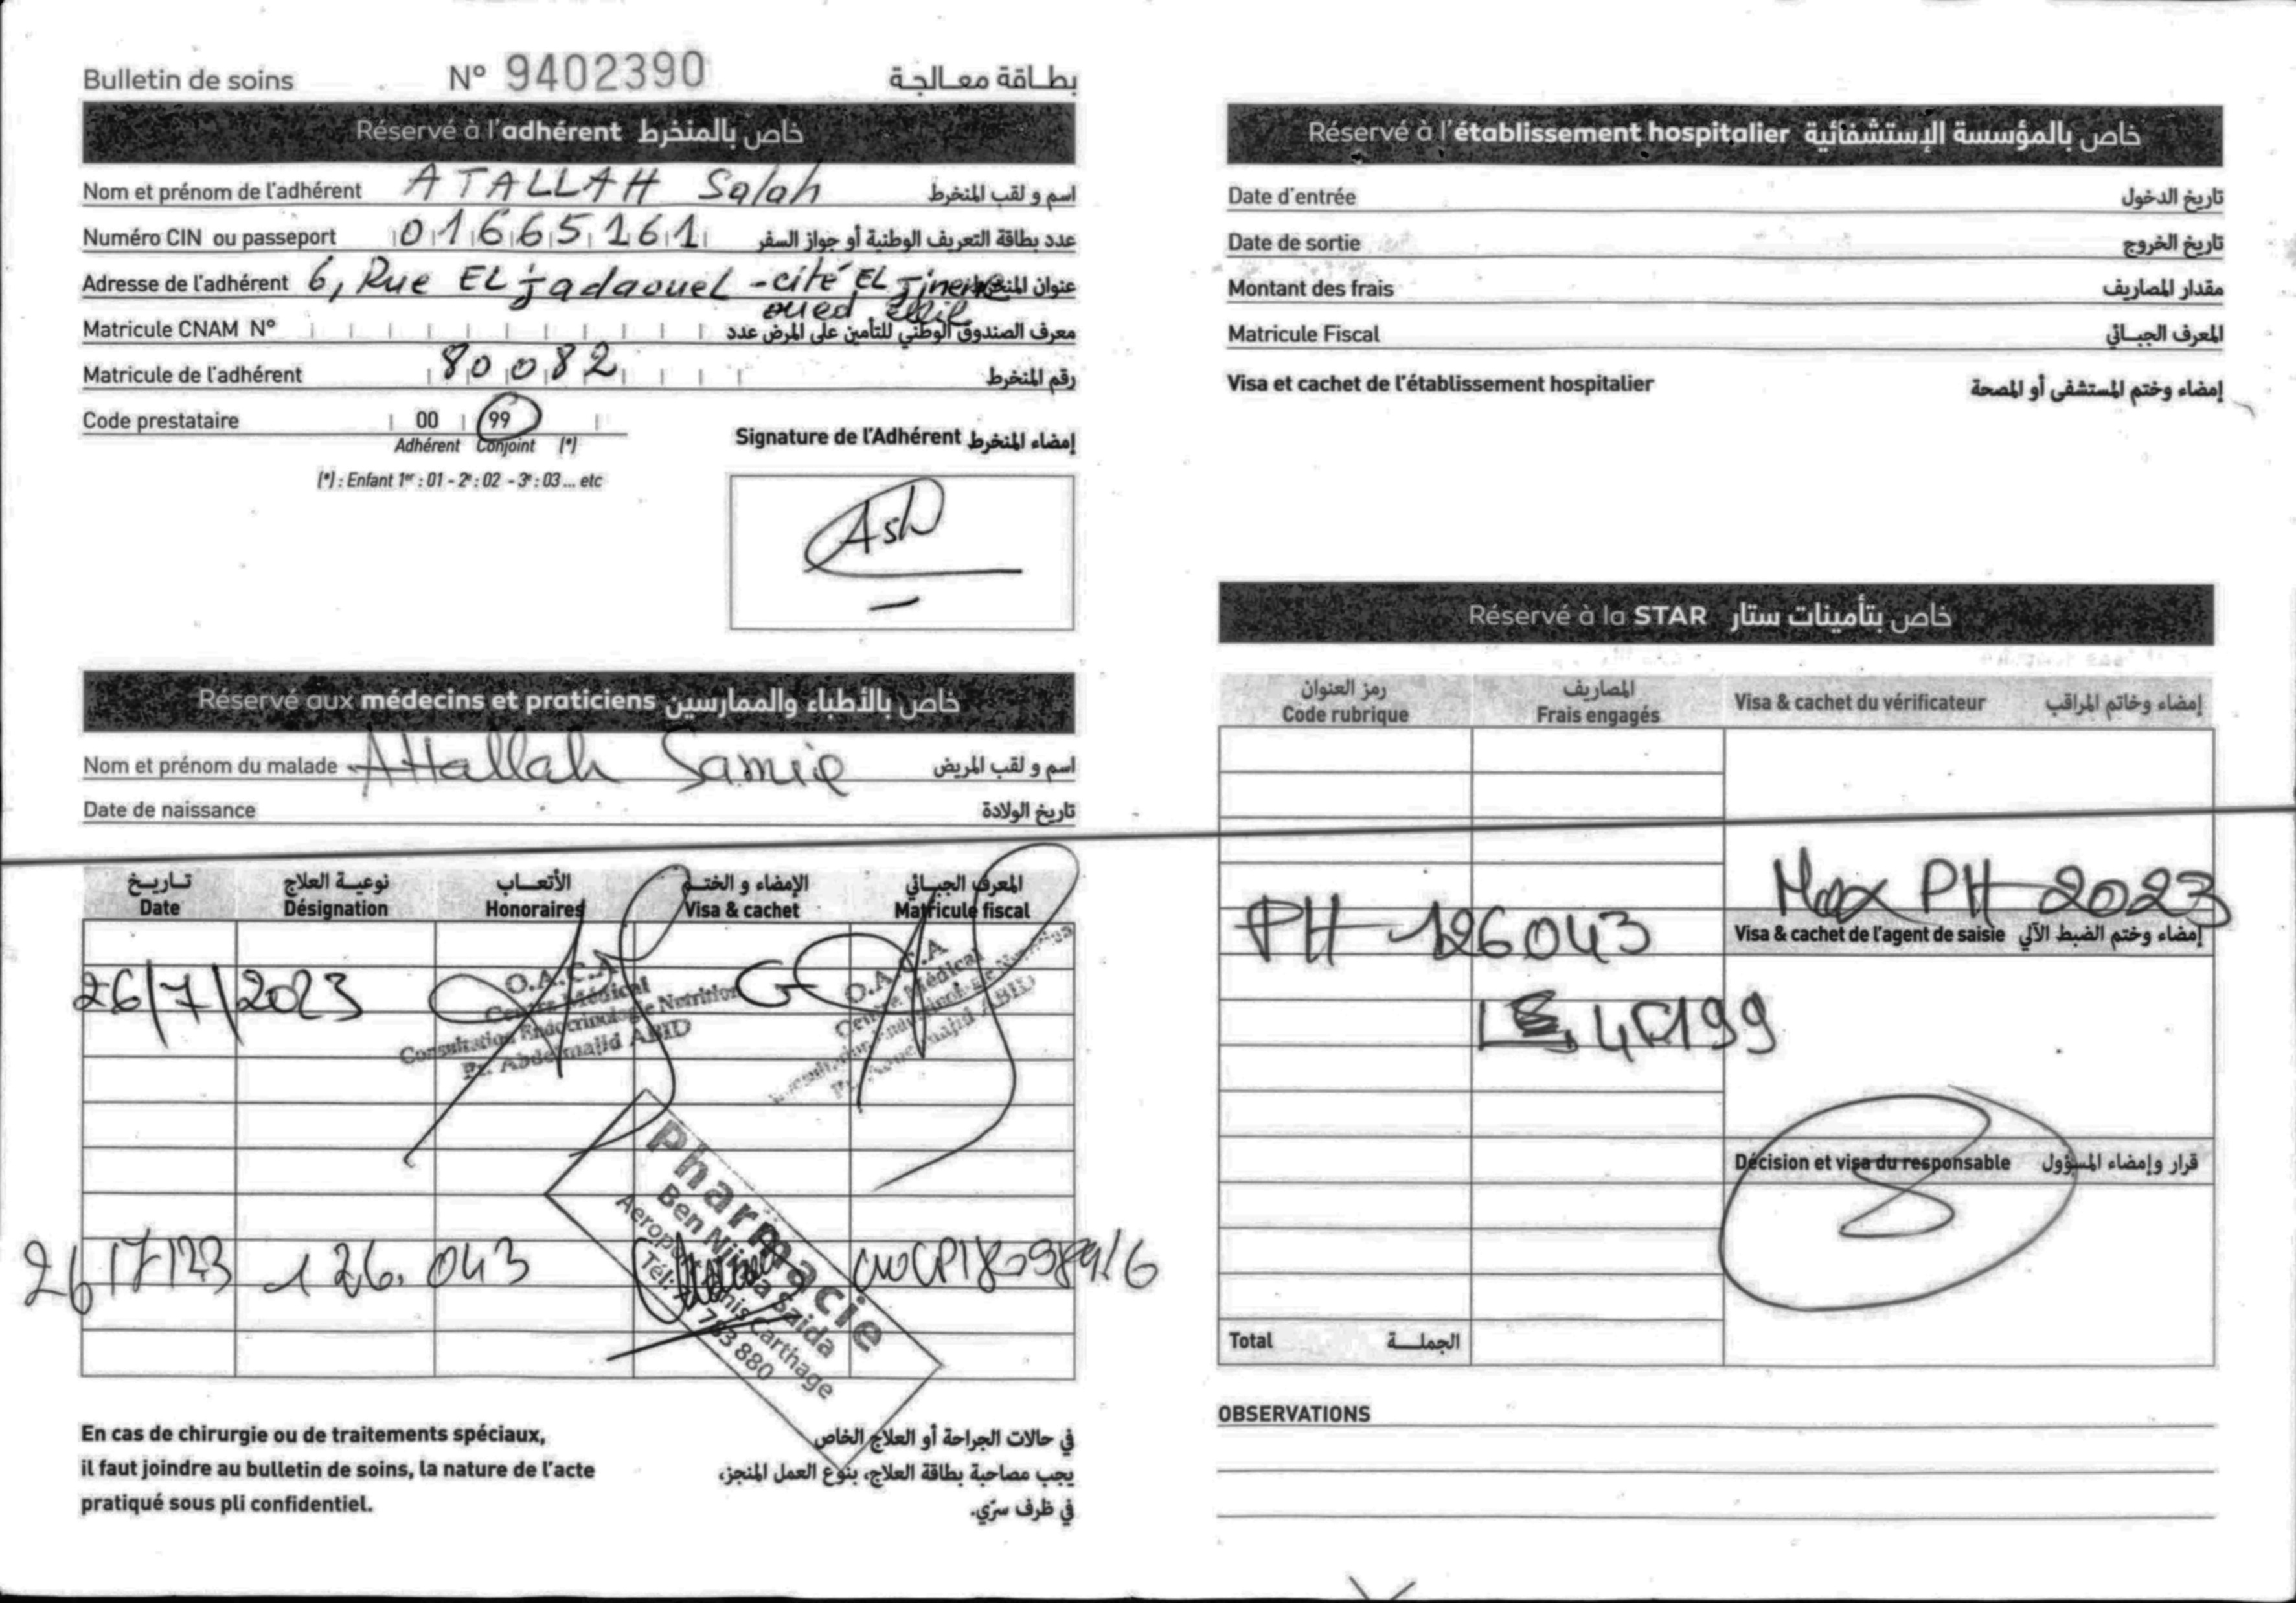 Bulletin de soins N° 9402390 بطاقة معالجة
Réservé à l'adhérent خاص بالمنخرط
Nom et prénom de l'adhérent ATALLAH Salah اسم و لقب المنخرط
Numéro CIN ou passeport 01665161 عدد بطاقة التعريف الوطنية أو جواز السفر
Adresse de l'adhérent 6, Rue EL jadaouel - cité EL عنوان
oued
Matricule CNAM N° معرف الصندوق الوطني للتأمين على المرض عدد
Matricule de l'adhérent 80082 رقم المنخرط
Code prestataire 00 99
Adhérent Conjoint (*)
(*) : Enfant 1er : 01 - 2e : 02 - 3e : 03 ... etc
Signature de l'Adhérent إمضاء المنخرط
Réservé aux médecins et praticiens خاص بالأطباء والممارسين
Nom et prénom du malade Attallah Samie اسم و لقب المريض
Date de naissance تاريخ الولادة
تاريخ نوعية العلاج الأتعاب الإمضاء و الختم المعرف الجبائي
Date Désignation Honoraires Visa & cachet Matricule fiscal
26/7/2023
O.A.C.A
Centre Médical
Consultation Endocrinologie Nutrition
Pr. Abdelmajid ABID
O.A.C.A
Centre Médical
Pharmacie
Ben Njima Saida
Aeroport Tunis Carthage
Tél: 783 880
26/7/23 126.043
En cas de chirurgie ou de traitements spéciaux,
il faut joindre au bulletin de soins, la nature de l'acte
pratiqué sous pli confidentiel.
في حالات الجراحة أو العلاج الخاص
يجب مصاحبة بطاقة العلاج، بنوع العمل المنجز،
في ظرف سرّي.
Réservé à l'établissement hospitalier خاص بالمؤسسة الإستشفائية
Date d'entrée تاريخ الدخول
Date de sortie تاريخ الخروج
Montant des frais مقدار المصاريف
Matricule Fiscal المعرف الجبائي
Visa et cachet de l'établissement hospitalier إمضاء وختم المستشفى أو المصحة
Réservé à la STAR خاص بتأمينات ستار
رمز العنوان المصاريف
Code rubrique Frais engagés Visa & cachet du vérificateur إمضاء وخاتم المراقب
Max PH 2023
PH 126043
Visa & cachet de l'agent de saisie إمضاء وختم الضبط الآلي
Décision et visa du responsable قرار وإمضاء المسؤول
Total الجملة
OBSERVATIONS